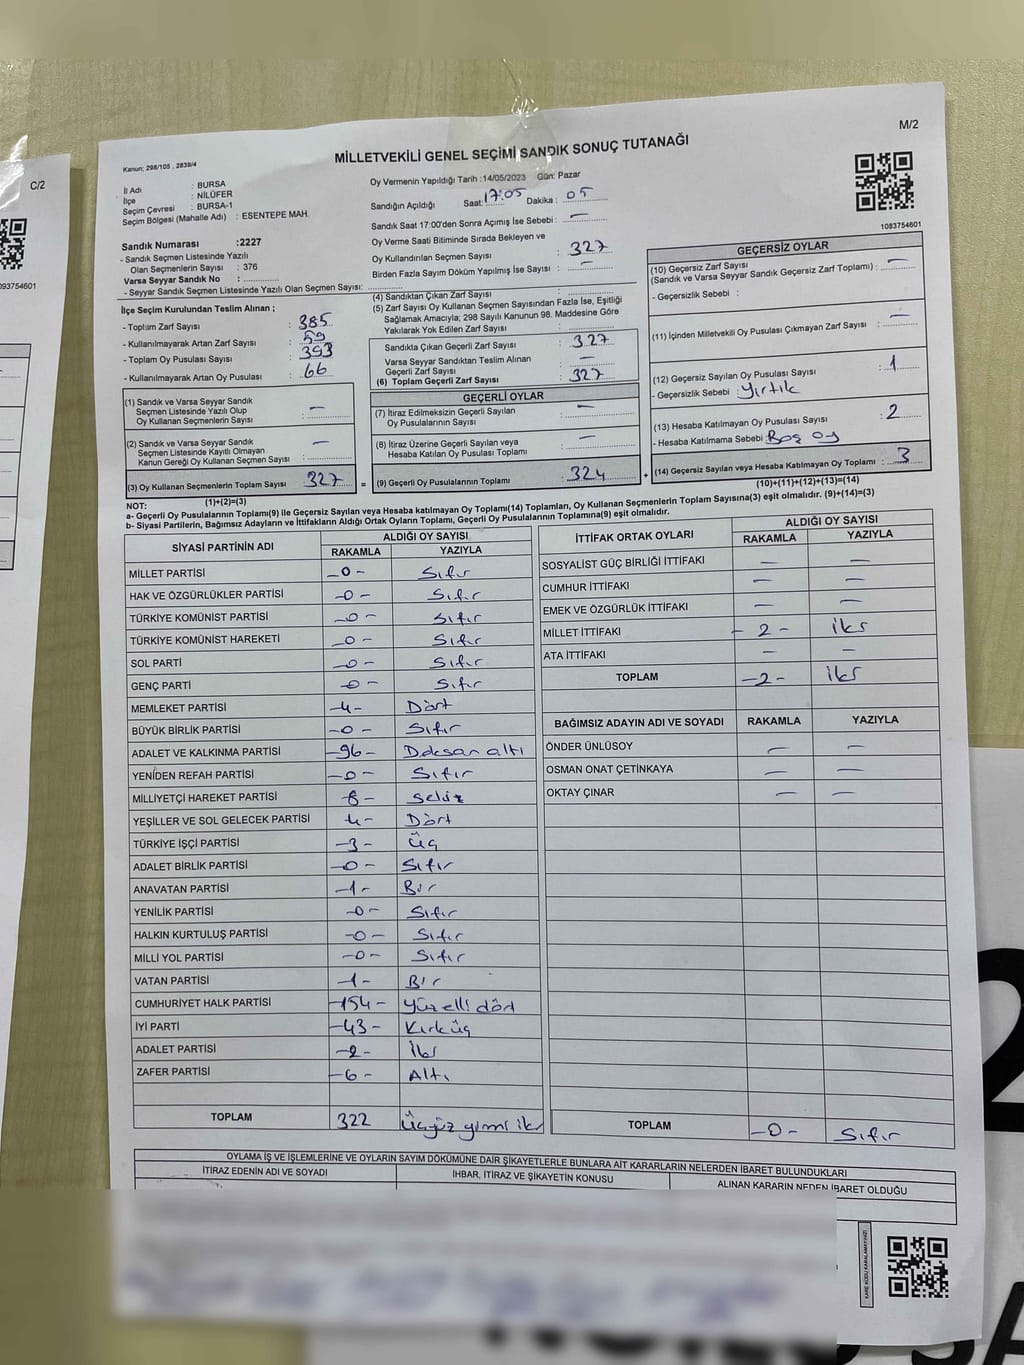 C/2
093754601
M/2
Kanun; 298/105 , 2839/4
MİLLETVEKİLİ GENEL SEÇİMİ SANDIK SONUÇ TUTANAĞI
İl Adı : BURSA
İlçe : NİLÜFER
Seçim Çevresi : BURSA-1
Seçim Bölgesi (Mahalle Adı) : ESENTEPE MAH.
Oy Vermenin Yapıldığı Tarih :14/05/2023 Gün: Pazar
Sandığın Açıldığı Saat: 17:05 Dakika : 05
Sandık Saat 17:00'den Sonra Açımış İse Sebebi : —
Oy Verme Saati Bitiminde Sırada Bekleyen ve
Oy Kullandırılan Seçmen Sayısı : 327
Birden Fazla Sayım Döküm Yapılmış İse Sayısı : —
1083754601
Sandık Numarası :2227
- Sandık Seçmen Listesinde Yazılı
Olan Seçmenlerin Sayısı : 376
Varsa Seyyar Sandık No :
- Seyyar Sandık Seçmen Listesinde Yazılı Olan Seçmen Sayısı:
İlçe Seçim Kurulundan Teslim Alınan ;
- Toplam Zarf Sayısı : 385
- Kullanılmayarak Artan Zarf Sayısı : 59
- Toplam Oy Pusulası Sayısı : 393
- Kullanılmayarak Artan Oy Pusulası : 66
(1) Sandık ve Varsa Seyyar Sandık
Seçmen Listesinde Yazılı Olup
Oy Kullanan Seçmenlerin Sayısı : —
(2) Sandık ve Varsa Seyyar Sandık
Seçmen Listesinde Kayıtlı Olmayan
Kanun Gereği Oy Kullanan Seçmen Sayısı : —
(3) Oy Kullanan Seçmenlerin Toplam Sayısı : 327
(1)+(2)=(3)
(4) Sandıktan Çıkan Zarf Sayısı :
(5) Zarf Sayısı Oy Kullanan Seçmen Sayısından Fazla İse, Eşitliği
Sağlamak Amacıyla; 298 Sayılı Kanunun 98. Maddesine Göre
Yakılarak Yok Edilen Zarf Sayısı :
Sandıkta Çıkan Geçerli Zarf Sayısı : 327
Varsa Seyyar Sandıktan Teslim Alınan
Geçerli Zarf Sayısı : —
(6) Toplam Geçerli Zarf Sayısı : 327
GEÇERLİ OYLAR
(7) İtiraz Edilmeksizin Geçerli Sayılan
Oy Pusulalarının Sayısı : —
(8) İtiraz Üzerine Geçerli Sayılan veya
Hesaba Katılan Oy Pusulası Toplamı : —
= (9) Geçerli Oy Pusulalarının Toplamı : 324
GEÇERSİZ OYLAR
(10) Geçersiz Zarf Sayısı
(Sandık ve Varsa Seyyar Sandık Geçersiz Zarf Toplamı) : —
- Geçersizlik Sebebi :
(11) İçinden Milletvekili Oy Pusulası Çıkmayan Zarf Sayısı : —
(12) Geçersiz Sayılan Oy Pusulası Sayısı : 1
- Geçersizlik Sebebi : Yırtık
(13) Hesaba Katılmayan Oy Pusulası Sayısı : 2
- Hesaba Katılmama Sebebi : Boş oy
+ (14) Geçersiz Sayılan veya Hesaba Katılmayan Oy Toplamı : 3
(10)+(11)+(12)+(13)=(14)
NOT:
a- Geçerli Oy Pusulalarının Toplamı(9) ile Geçersiz Sayılan veya Hesaba katılmayan Oy Toplamı(14) Toplamları, Oy Kullanan Seçmenlerin Toplam Sayısına(3) eşit olmalıdır. (9)+(14)=(3)
b- Siyasi Partilerin, Bağımsız Adayların ve İttifakların Aldığı Ortak Oyların Toplamı, Geçerli Oy Pusulalarının Toplamına(9) eşit olmalıdır.
SİYASİ PARTİNİN ADI ALDIĞI OY SAYISI
RAKAMLA YAZIYLA
MİLLET PARTİSİ -0- Sıfır
HAK VE ÖZGÜRLÜKLER PARTİSİ -0- Sıfır
TÜRKİYE KOMÜNİST PARTİSİ -0- Sıfır
TÜRKİYE KOMÜNİST HAREKETİ -0- Sıfır
SOL PARTİ -0- Sıfır
GENÇ PARTİ -0- Sıfır
MEMLEKET PARTİSİ -4- Dört
BÜYÜK BİRLİK PARTİSİ -0- Sıfır
ADALET VE KALKINMA PARTİSİ -96- Doksan altı
YENİDEN REFAH PARTİSİ -0- Sıfır
MİLLİYETÇİ HAREKET PARTİSİ -8- Sekiz
YEŞİLLER VE SOL GELECEK PARTİSİ -4- Dört
TÜRKİYE İŞÇİ PARTİSİ -3- Üç
ADALET BİRLİK PARTİSİ -0- Sıfır
ANAVATAN PARTİSİ -1- Bir
YENİLİK PARTİSİ -0- Sıfır
HALKIN KURTULUŞ PARTİSİ -0- Sıfır
MİLLİ YOL PARTİSİ -0- Sıfır
VATAN PARTİSİ -1- Bir
CUMHURİYET HALK PARTİSİ -154- Yüz elli dört
İYİ PARTİ -43- Kırküç
ADALET PARTİSİ -2- İki
ZAFER PARTİSİ -6- Altı
TOPLAM 322 Üçyüz yirmi iki
İTTİFAK ORTAK OYLARI ALDIĞI OY SAYISI
RAKAMLA YAZIYLA
SOSYALİST GÜÇ BİRLİĞİ İTTİFAKI — —
CUMHUR İTTİFAKI — —
EMEK VE ÖZGÜRLÜK İTTİFAKI — —
MİLLET İTTİFAKI -2- iki
ATA İTTİFAKI — —
TOPLAM -2- iki
BAĞIMSIZ ADAYIN ADI VE SOYADI RAKAMLA YAZIYLA
ÖNDER ÜNLÜSOY — —
OSMAN ONAT ÇETİNKAYA — —
OKTAY ÇINAR — —
TOPLAM -0- Sıfır
OYLAMA İŞ VE İŞLEMLERİNE VE OYLARIN SAYIM DÖKÜMÜNE DAİR ŞİKAYETLERLE BUNLARA AİT KARARLARIN NELERDEN İBARET BULUNDUKLARI
İTİRAZ EDENİN ADI VE SOYADI İHBAR, İTİRAZ VE ŞİKAYETİN KONUSU ALINAN KARARIN NEDEN İBARET OLDUĞU
KARE KODU KARALAMAYINIZ!
2